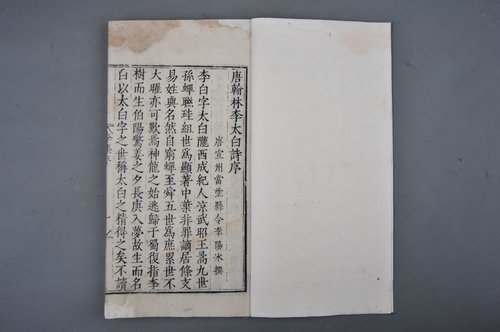 唐翰林李太白詩序
唐宣州當塗縣令李陽冰撰
李白字太白隴西成紀人涼武昭王暠九世
孫蟬聯珪組世爲顯著中葉非罪謫居條支
易姓與名然自窮蟬至舜五世爲庶累世不
大曜亦可歎焉神龍之始逃歸于蜀復指李
樹而生伯陽驚姜之夕長庚入夢故生而名
白以太白字之世稱太白之精得之矣不讀